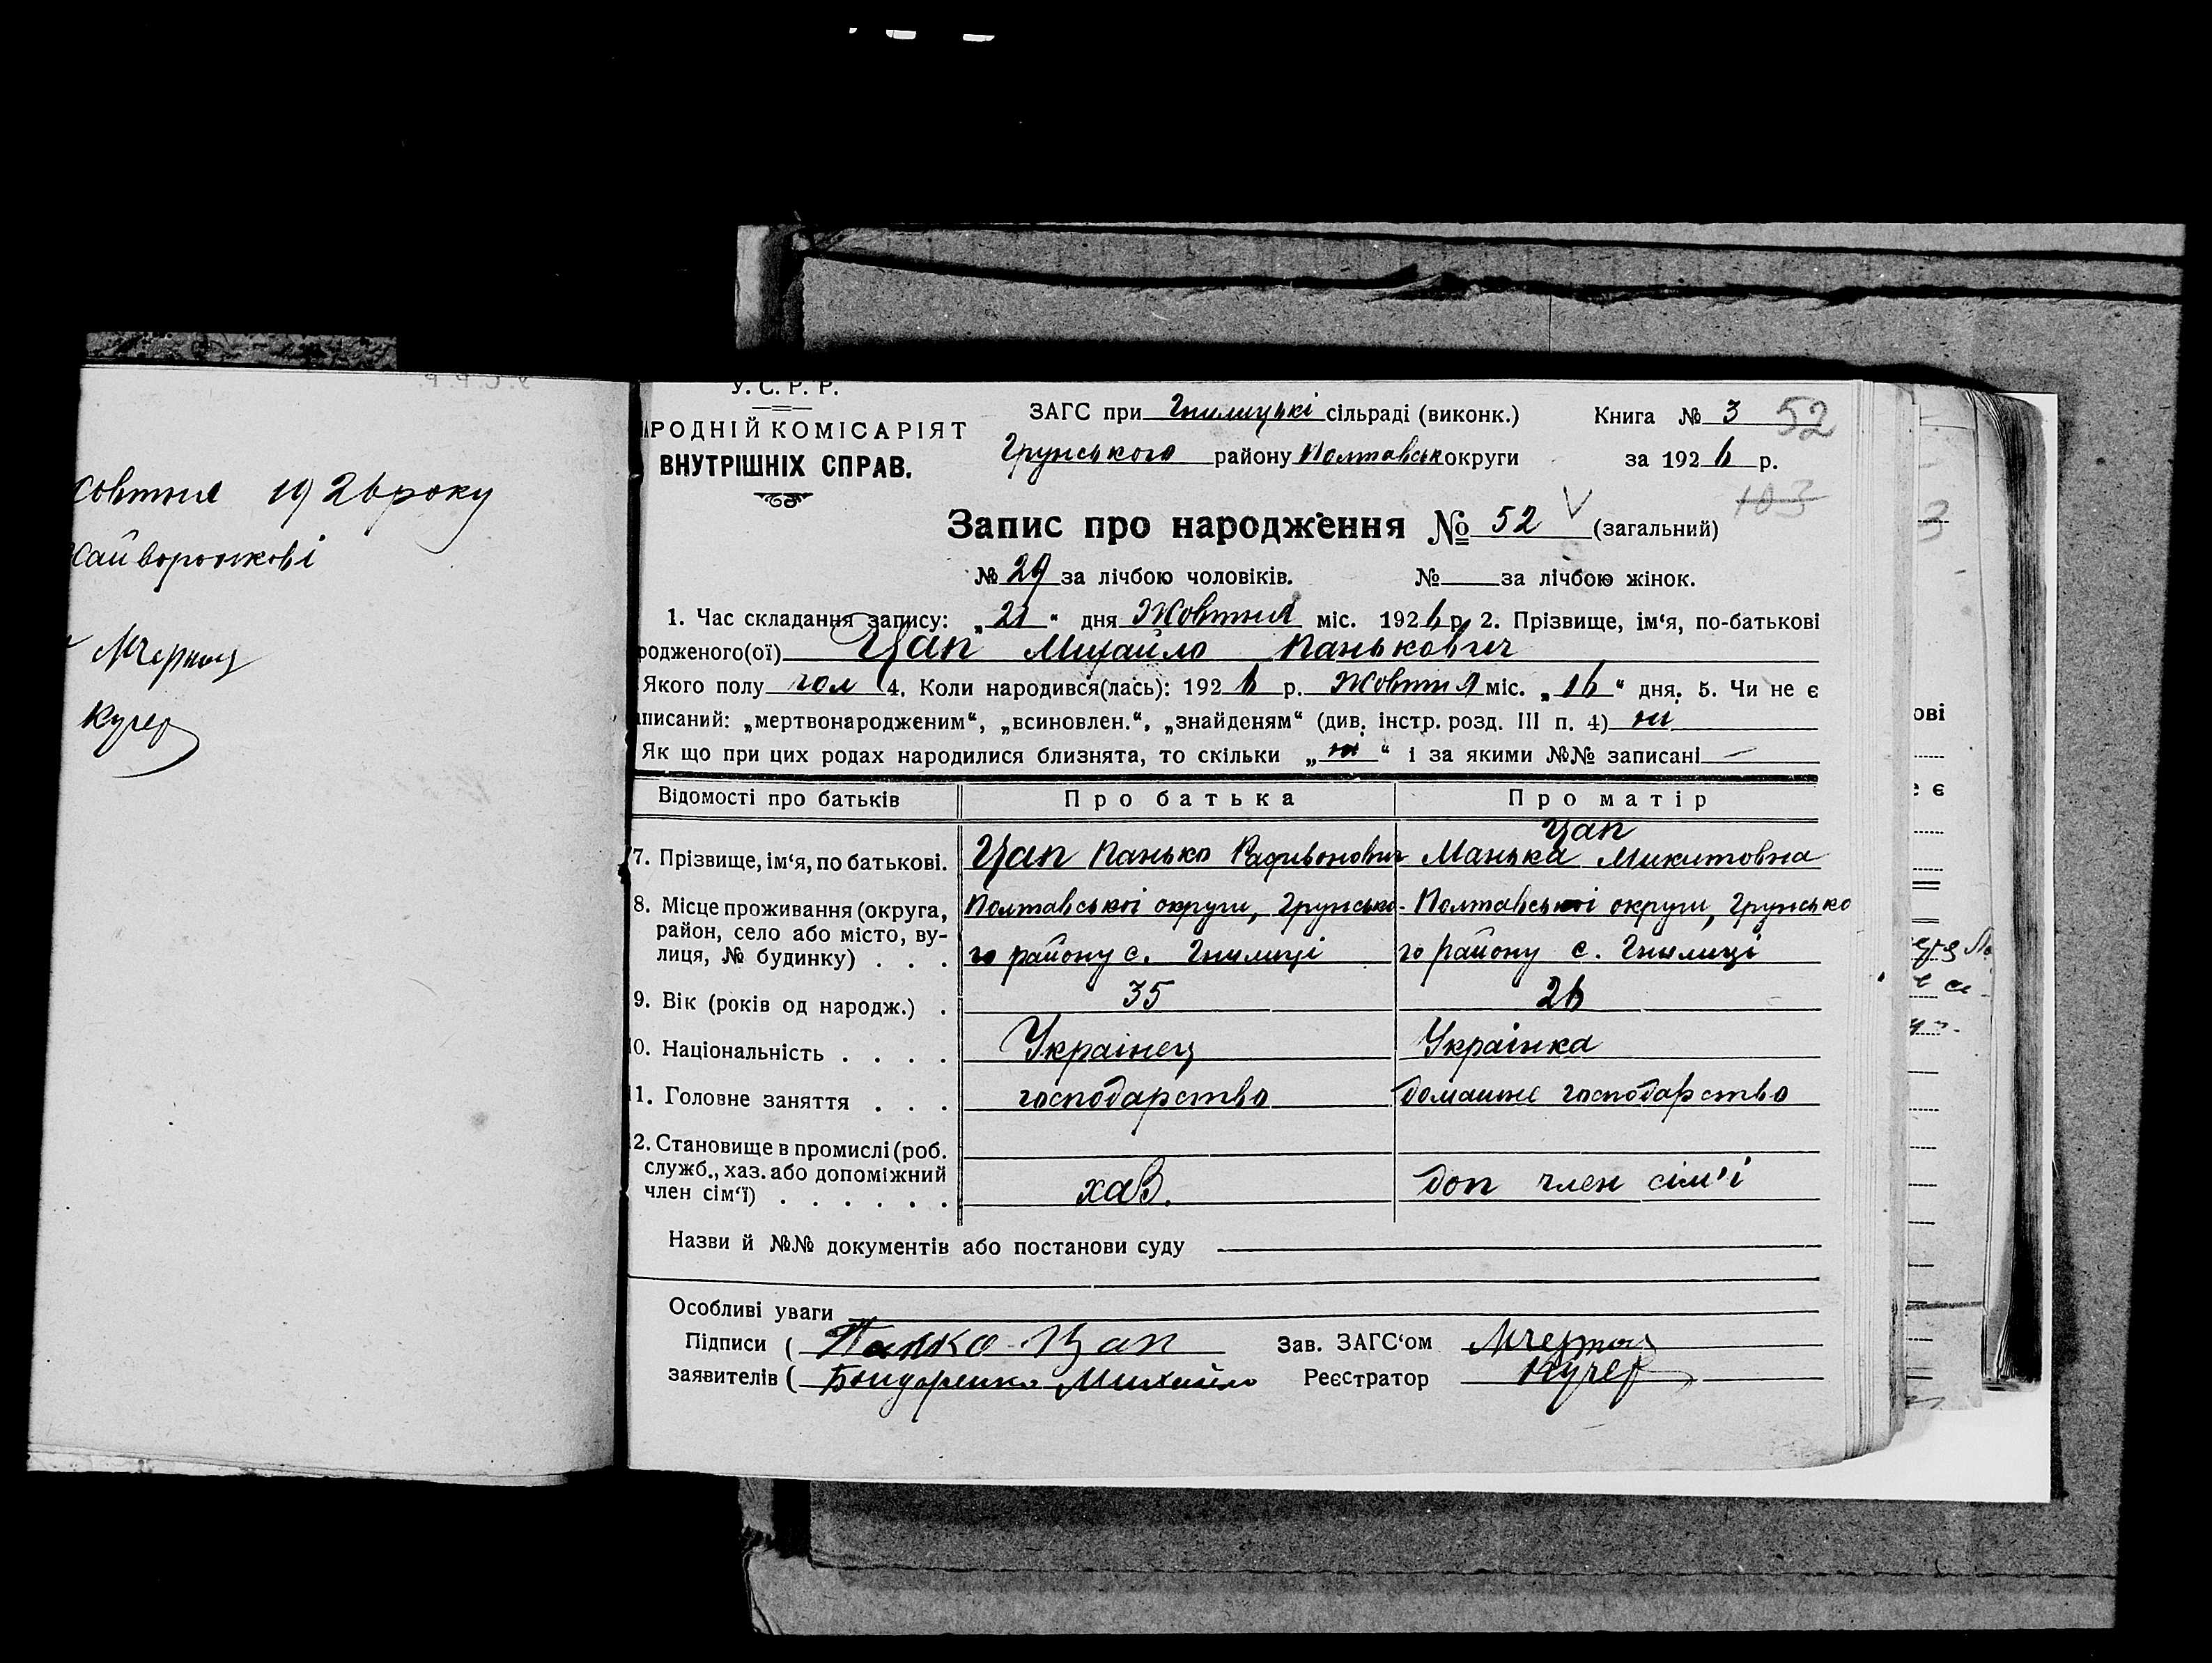 овтня 1926 року
айворонкові
Кучер
У. С. Р. Р.
РОДНІЙ КОМІСАРІЯТ
ВНУТРІШНІХ СПРАВ.
ЗАГС при Гнилицькі сільраді (виконк.)
Грунського району Полтавськ округи
Книга № 3
52
за 1926 р.
103
Запис про народження № 52 (загальний)
№ 29 за лічбою чоловіків. № за лічбою жінок.
1. Час складання запису: „21“ дня Жовтня міс. 1926 р. 2. Прізвище, ім‘я, по-батькові
родженого(ої) Цап Михайло Панькович
Якого полу чол 4. Коли народився(лась): 1926 р. Жовтня міс. „16“ дня. 5. Чи не є
писаний: „мертвонародженим“, „всиновлен.“, „знайденям“ (див. інстр. розд. III п. 4) ні
Як що при цих родах народилися близнята, то скільки „ні“ і за якими №№ записані —
Відомості про батьків Про батька Про матір
Цап
7. Прізвище, ім‘я, по батькові. Цап Панько Радивонович Манька Микитовна
8. Місце проживання (округа, район, село або місто, вулиця, № будинку) . . .
Полтавської округи, Грунсько-
го району с. Гнилиці
Полтавської округи, Грунсько
го району с. Гнилиці
9. Вік (років од народж.) . 35 26
10. Національність . . . . Українец Українка
11. Головне заняття . . . господарство домашнє господарство
2. Становище в промислі (роб.
служб., хаз. або допоміжний
член сім‘ї) . . . . . . хаз. доп член сім'ї
Назви й №№ документів або постанови суду
Особливі уваги
Підписи ( Панко Цап Зав. ЗАГС‘ом
заявителів ( Бондаренко Михайло Реєстратор Кучер
ові
є